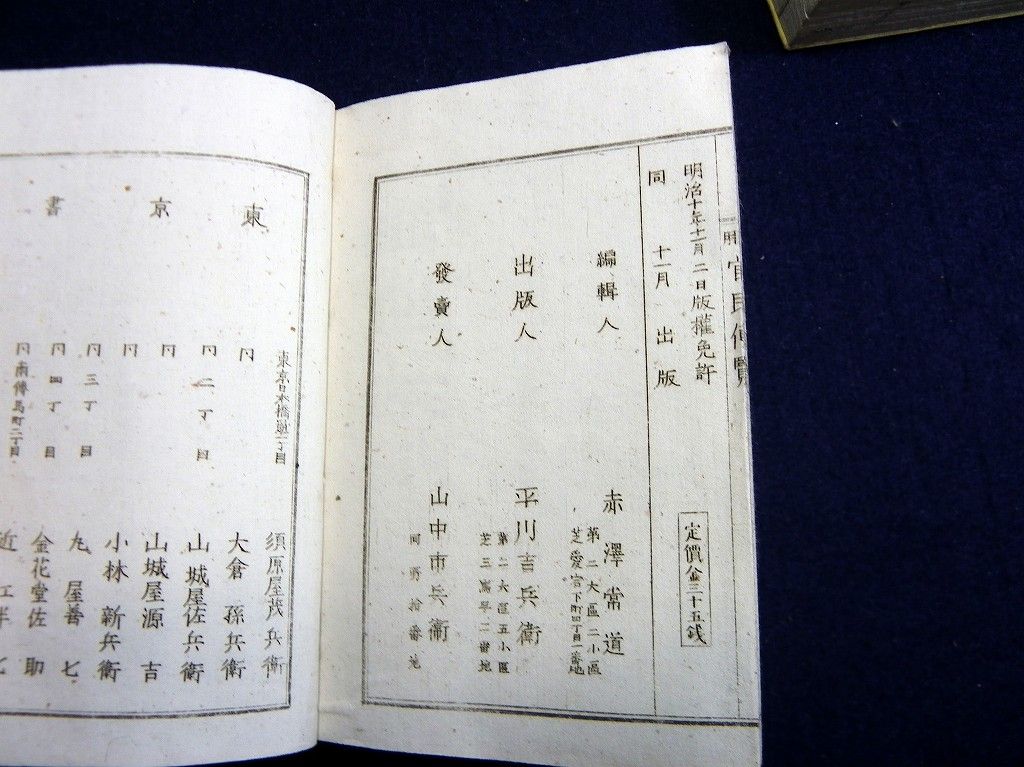 官民
明治十年十一月二日版權免許
同 十一月 出版
定價金三十五銭
編輯人 赤澤常道
第二大區二小區
芝愛宕下町四丁目一番地
出版人 平川吉兵衛
第二大區五小區
發賣人 山中市兵衛
東京書
東京日本橋通一丁目 須原屋茂兵衛
同 大倉孫兵衛
同 二丁目 山城屋佐兵衛
同 山城屋源吉
同 小林新兵衛
同 三丁目 丸屋善七
同 四丁目 金花堂佐助
同 南傳馬町二丁目 近江半七